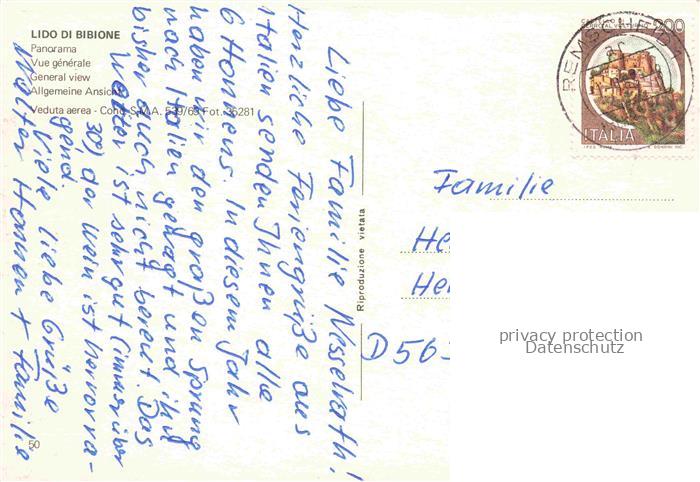 LIDO DI BIBIONE
Panorama
Vue générale
General view
Allgemeine Ansicht
Veduta aerea - Conc. S.M.A. 539/69 Fot. 36281
Liebe Familie Wesselrath!
Herzliche Feriengrüße aus
Italien senden Ihnen alle
6 Honnens. In diesem Jahr
haben wir den großen Sprung
nach Italien gewagt und ihn
bisher auch nicht bereut. Das
Wetter ist sehr gut (immer über
30°), der Wein ist hervorra-
gend.
Viele liebe Grüße
Walter Honnen + Familie
Riproduzione vietata
Familie
He
He
D 56
50
REMSCHEID
200
ITALIA
privacy protection
Datenschutz